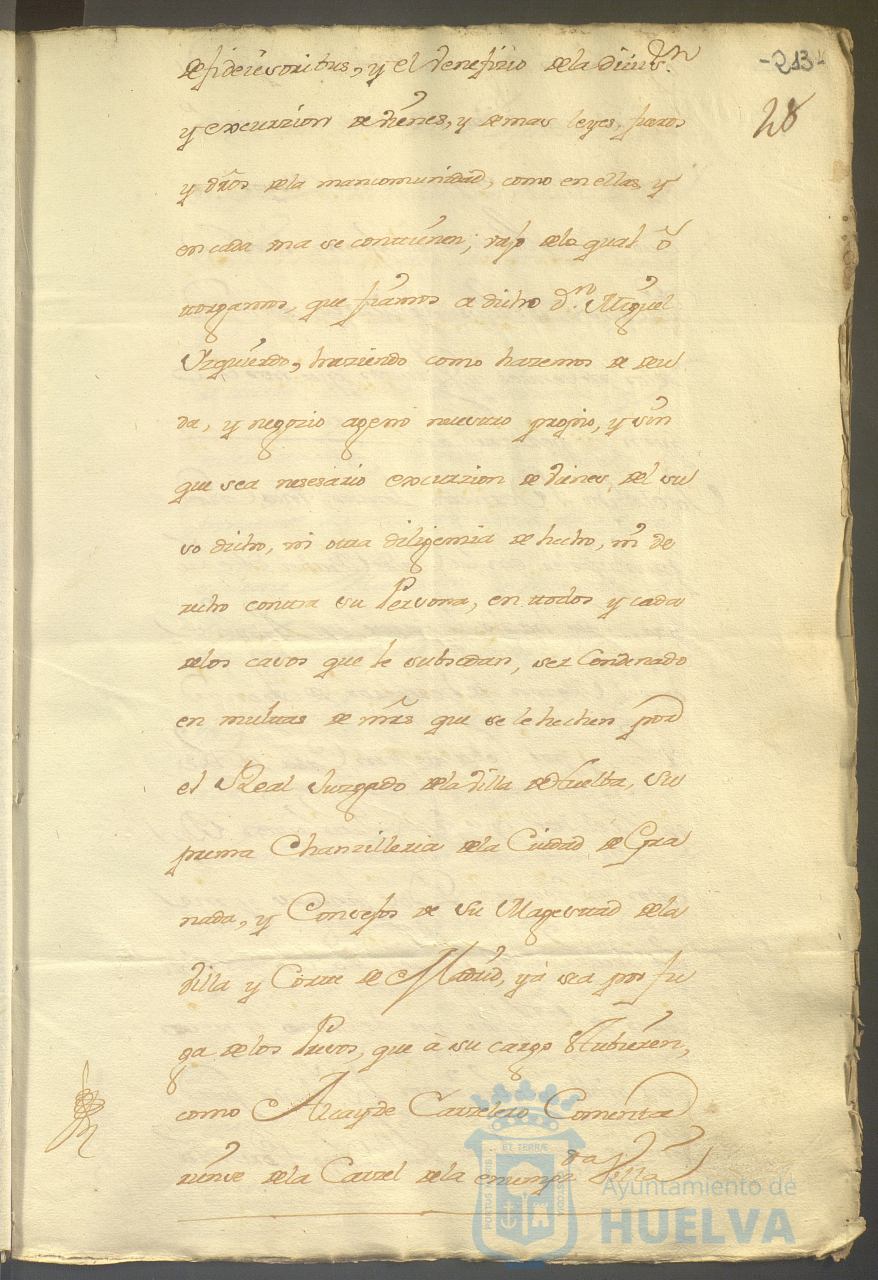 -213-
28
de fideiusoribus, y el benefizio de la divis.n
y excurzion de vienes, y demas leyes, fueros
y dros de la mancomunidad, como en ellas, y
en cada una se contienen; vajo de la qual o
torgamos, que fiamos a dicho d.n Miguel
Yzquierdo, haziendo como hazemos de deu
da, y negozio ageno nuestro propio, y sin
que sea nesesario excurzion de vienes del su
so dicho, ni otra diligencia de hecho, ni de
recho contra su Persona, en todos y cada
de los casos que le subsedan, ser Condenado
en multas de mrs que se le hechen por
el Real Juzgado de la Villa de Huelba, Su
prema Chanzilleria de la Ciudad de Gra
nada, y Consejos de Su Magestad de la
Villa y Corte de Madrid, ya sea por fu
ga de los Presos, que à su cargo Hubieren,
como Alcayde Carzelero Comenta
riense de la Carzel de la
da Villa
PORTUS MARIS
ET TERRAE
CUSTODIA
Ayuntamiento de
HUELVA